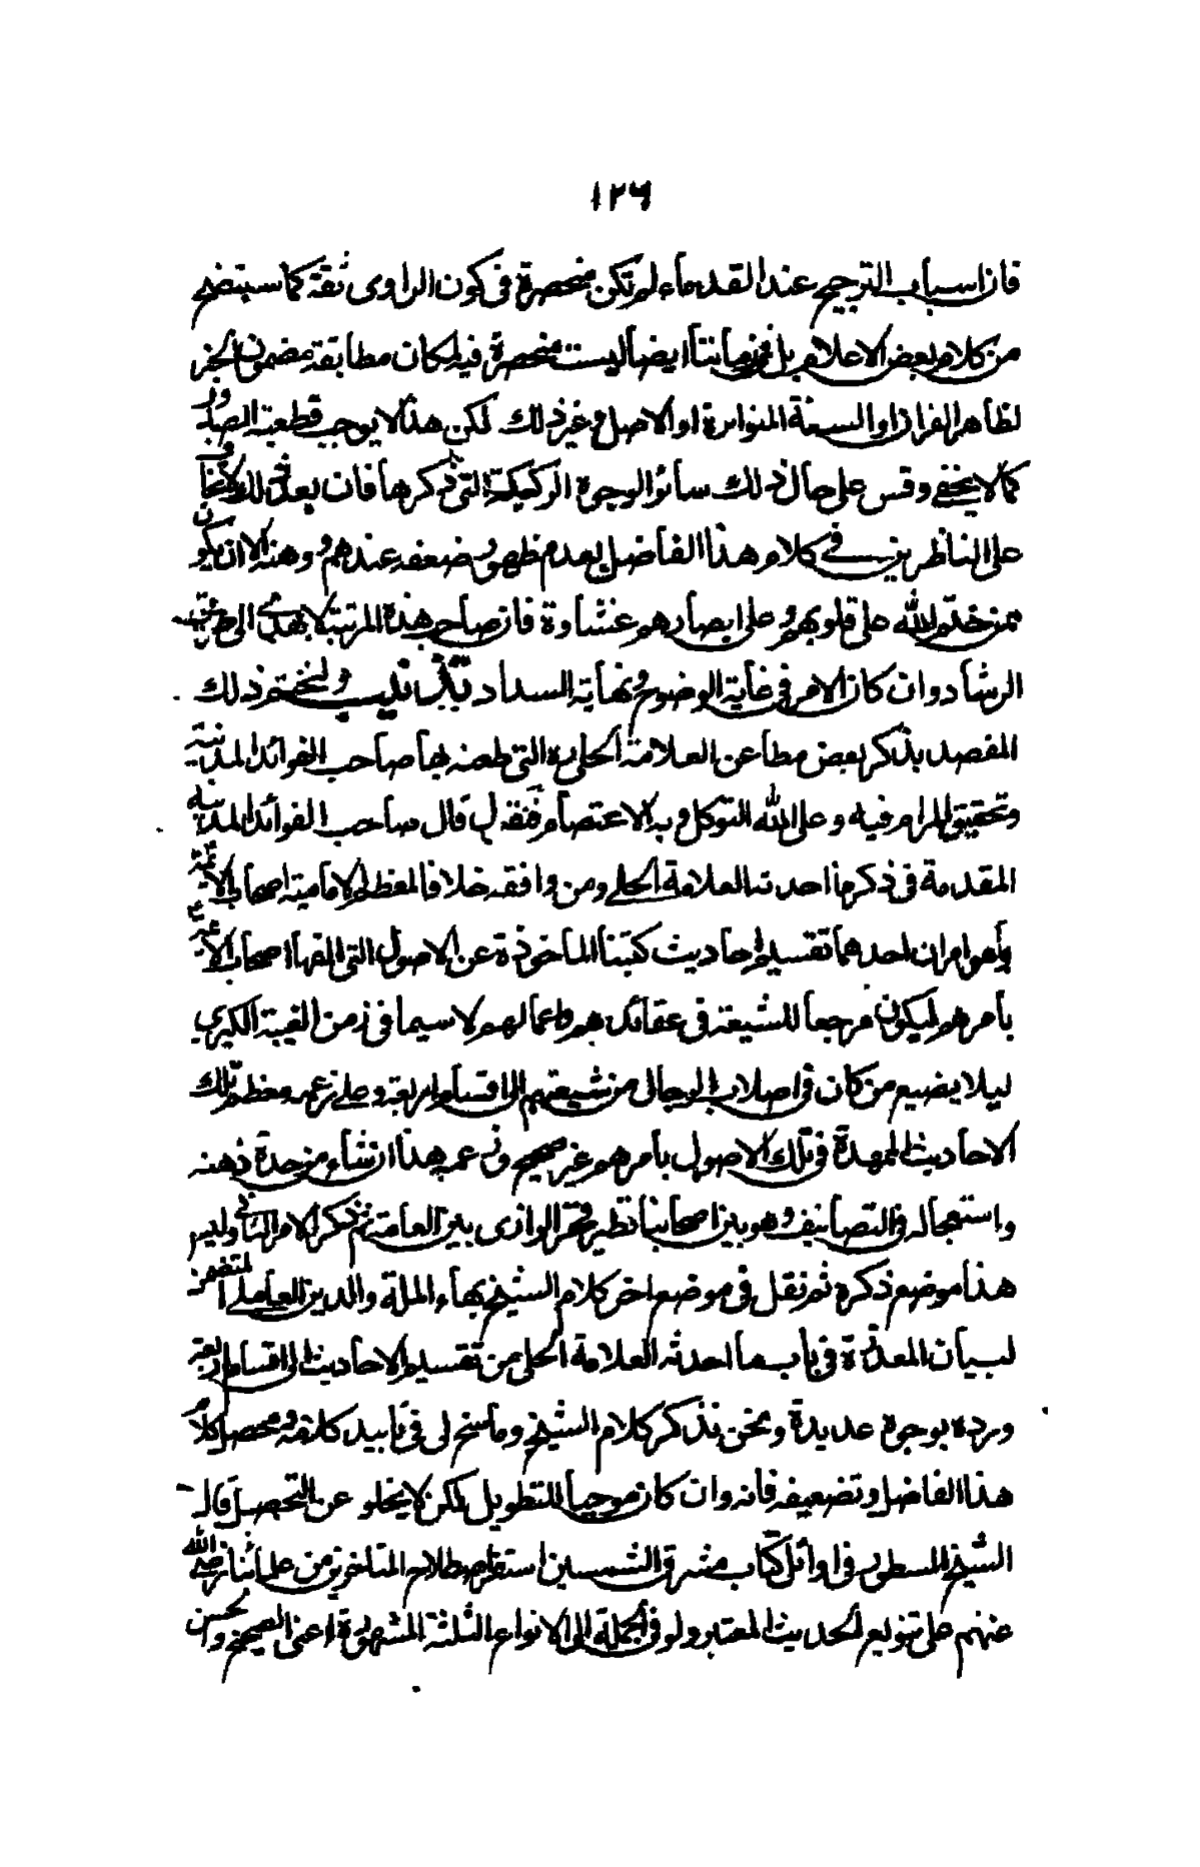 ١٢٦
فان اسباب الترجيح عند القدماء لم تكن منحصرة في كون الراوى ثقة كما سيتضح
من كلام بعض الاعلام بل في زماننا ايضا ليست منحصرة فيه لمكان مطابقة مضمون الخبر
لظاهر القران او السنة المتواترة او الاصل و غير ذلك لكن هذا لا يوجب قطعية الصدور
كما لا يخفى و قس على حال ذلك سائر الوجوه الركيكة التى ذكرها فان بعد ذلك لا خفاء
على الناظرين في كلام هذا الفاضل بعدم ظهور ضعفه عندهم و وهنه الا ان يكون
ممن ختم الله على قلوبهم و على ابصارهم غشاوة فان صاحب هذه المرتبة لا يهدى الى
الرشاد و ان كان الامر في غاية الوضوح و نهاية السداد تذنيب و لنختم ذلك
المقصد بذكر بعض مطاعن العلامة الحلى ره التى طعنه بها صاحب الفوائد المدنية
و تحقيق المرام فيه و على الله التوكل و به الاعتصام فنقول قال صاحب الفوائد المدنية
المقدمة في ذكر ما احدثه العلامة الحلى و من وافقه خلافا لمعظم الامامية اصحاب الائمة
و هو امران احدهما تقسيم احاديث كتبنا الماخوذة عن الاصول التى الفها اصحاب الائمة
بامرهم ليكون مرجعا للشيعة في عقائدهم و اعمالهم لا سيما في زمن الغيبة الكبرى
ليلا يضيع من كان في اصلاب الرجال من شيعتهم الى اقسام اربعة و على زعمه معظم تلك
الاحاديث الممهدة في تلك الاصول بامرهم غير صحيح و زعمه هذا انشاء من حدة ذهنه
و استعجاله في التصانيف و هو بين اصحابنا نظير فخر الرازى بين العامة ثم ذكر الامر الثانى و ليس
هذا موضع ذكره ثم نقل في موضع اخر كلام الشيخ بهاء الملة و الدين العاملى المتضمن
لبيان المعذرة في باب ما احدثه العلامة الحلى من تقسيم الاحاديث الى اقسام اربعة
و رده بوجوه عديدة و نحن نذكر كلام الشيخ و ما سنح لى في تاييد كلامه و محصل كلام
هذا الفاضل و تضعيفه فانه و ان كان موجبا للتطويل لكن لا يخلو عن التحصيل قال
الشيخ المسطور في اوائل كتاب مشرق الشمسين استقر اصطلاح المتاخرين من علمائنا رضى الله
عنهم على تنويع الحديث المعتبر و لو في الجملة الى الانواع الثلثة المشهورة اعنى الصحيح و الحسن